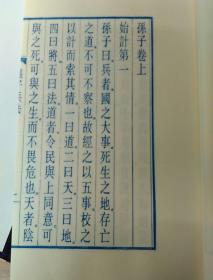 孫子卷上
始計第一
孫子曰兵者國之大事死生之地存亡
之道不可不察也故經之以五事校之
以計而索其情一曰道二曰天三曰地
四曰將五曰法道者令民與上同意可
與之死可與之生而不畏危也天者陰